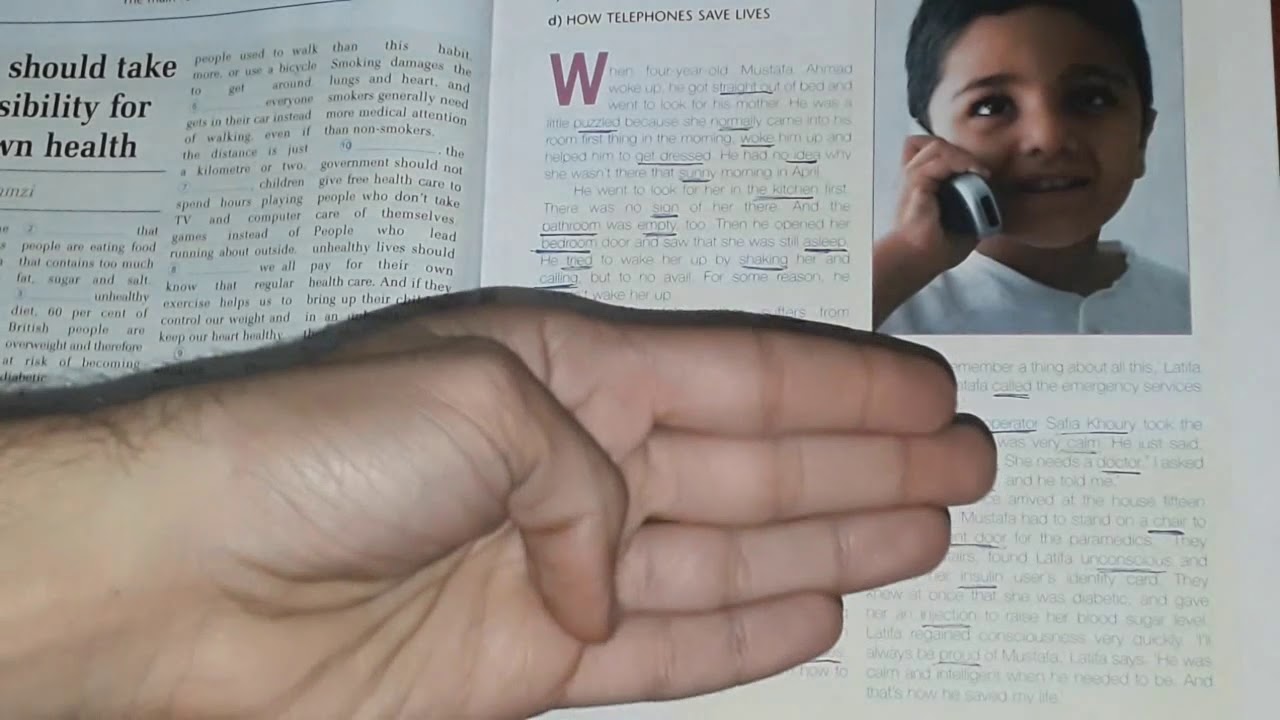 The main
should take
sibility for
wn health
that
people are eating food
that contains too much
fat, sugar and salt.
unhealthy
diet, 60 per cent of
British people are
overweight and therefore
at risk of becoming
diabetic
people used to walk
more, or use a bicycle
to get around.
6 everyone
gets in their car instead
of walking, even if
the distance is just
a kilometre or two.
7 , children
spend hours playing
TV and computer
games instead of
running about outside.
8 we all
know that regular
exercise helps us to
control our weight and
keep our heart healthy.
9
than this habit.
Smoking damages the
lungs and heart, and
smokers generally need
more medical attention
than non-smokers.
10 , the
government should not
give free health care to
people who don't take
care of themselves.
People who lead
unhealthy lives should
pay for their own
health care. And if they
bring up their
in an
d) HOW TELEPHONES SAVE LIVES
When four-year-old Mustafa Ahmad
woke up, he got straight out of bed and
went to look for his mother. He was a
little puzzled because she normally came into his
room first thing in the morning, woke him up and
helped him to get dressed. He had no idea why
she wasn't there that sunny morning in April.
He went to look for her in the kitchen first.
There was no sign of her there. And the
bathroom was empty, too. Then he opened her
bedroom door and saw that she was still asleep.
He tried to wake her up by shaking her and
calling, but to no avail. For some reason, he
wake her up.
from
how to
a thing about all this,' Latifa
called the emergency services
Safia Khoury took the
was very calm. He just said,
She needs a doctor." I asked
and he told me.'
arrived at the house fifteen
Mustafa had to stand on a chair to
door for the paramedics. They
found Latifa unconscious and
insulin user's identity card. They
knew at once that she was diabetic, and gave
her an injection to raise her blood sugar level.
Latifa regained consciousness very quickly. 'I'll
always be proud of Mustafa,' Latifa says. 'He was
calm and intelligent when he needed to be. And
that's how he saved my life.'